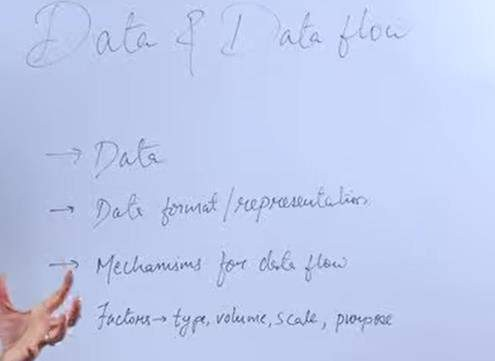 Data & Data flow
→ Data
→ Data format/representation
→ Mechanisms for data flow
Factors → type, volume, scale, purpose